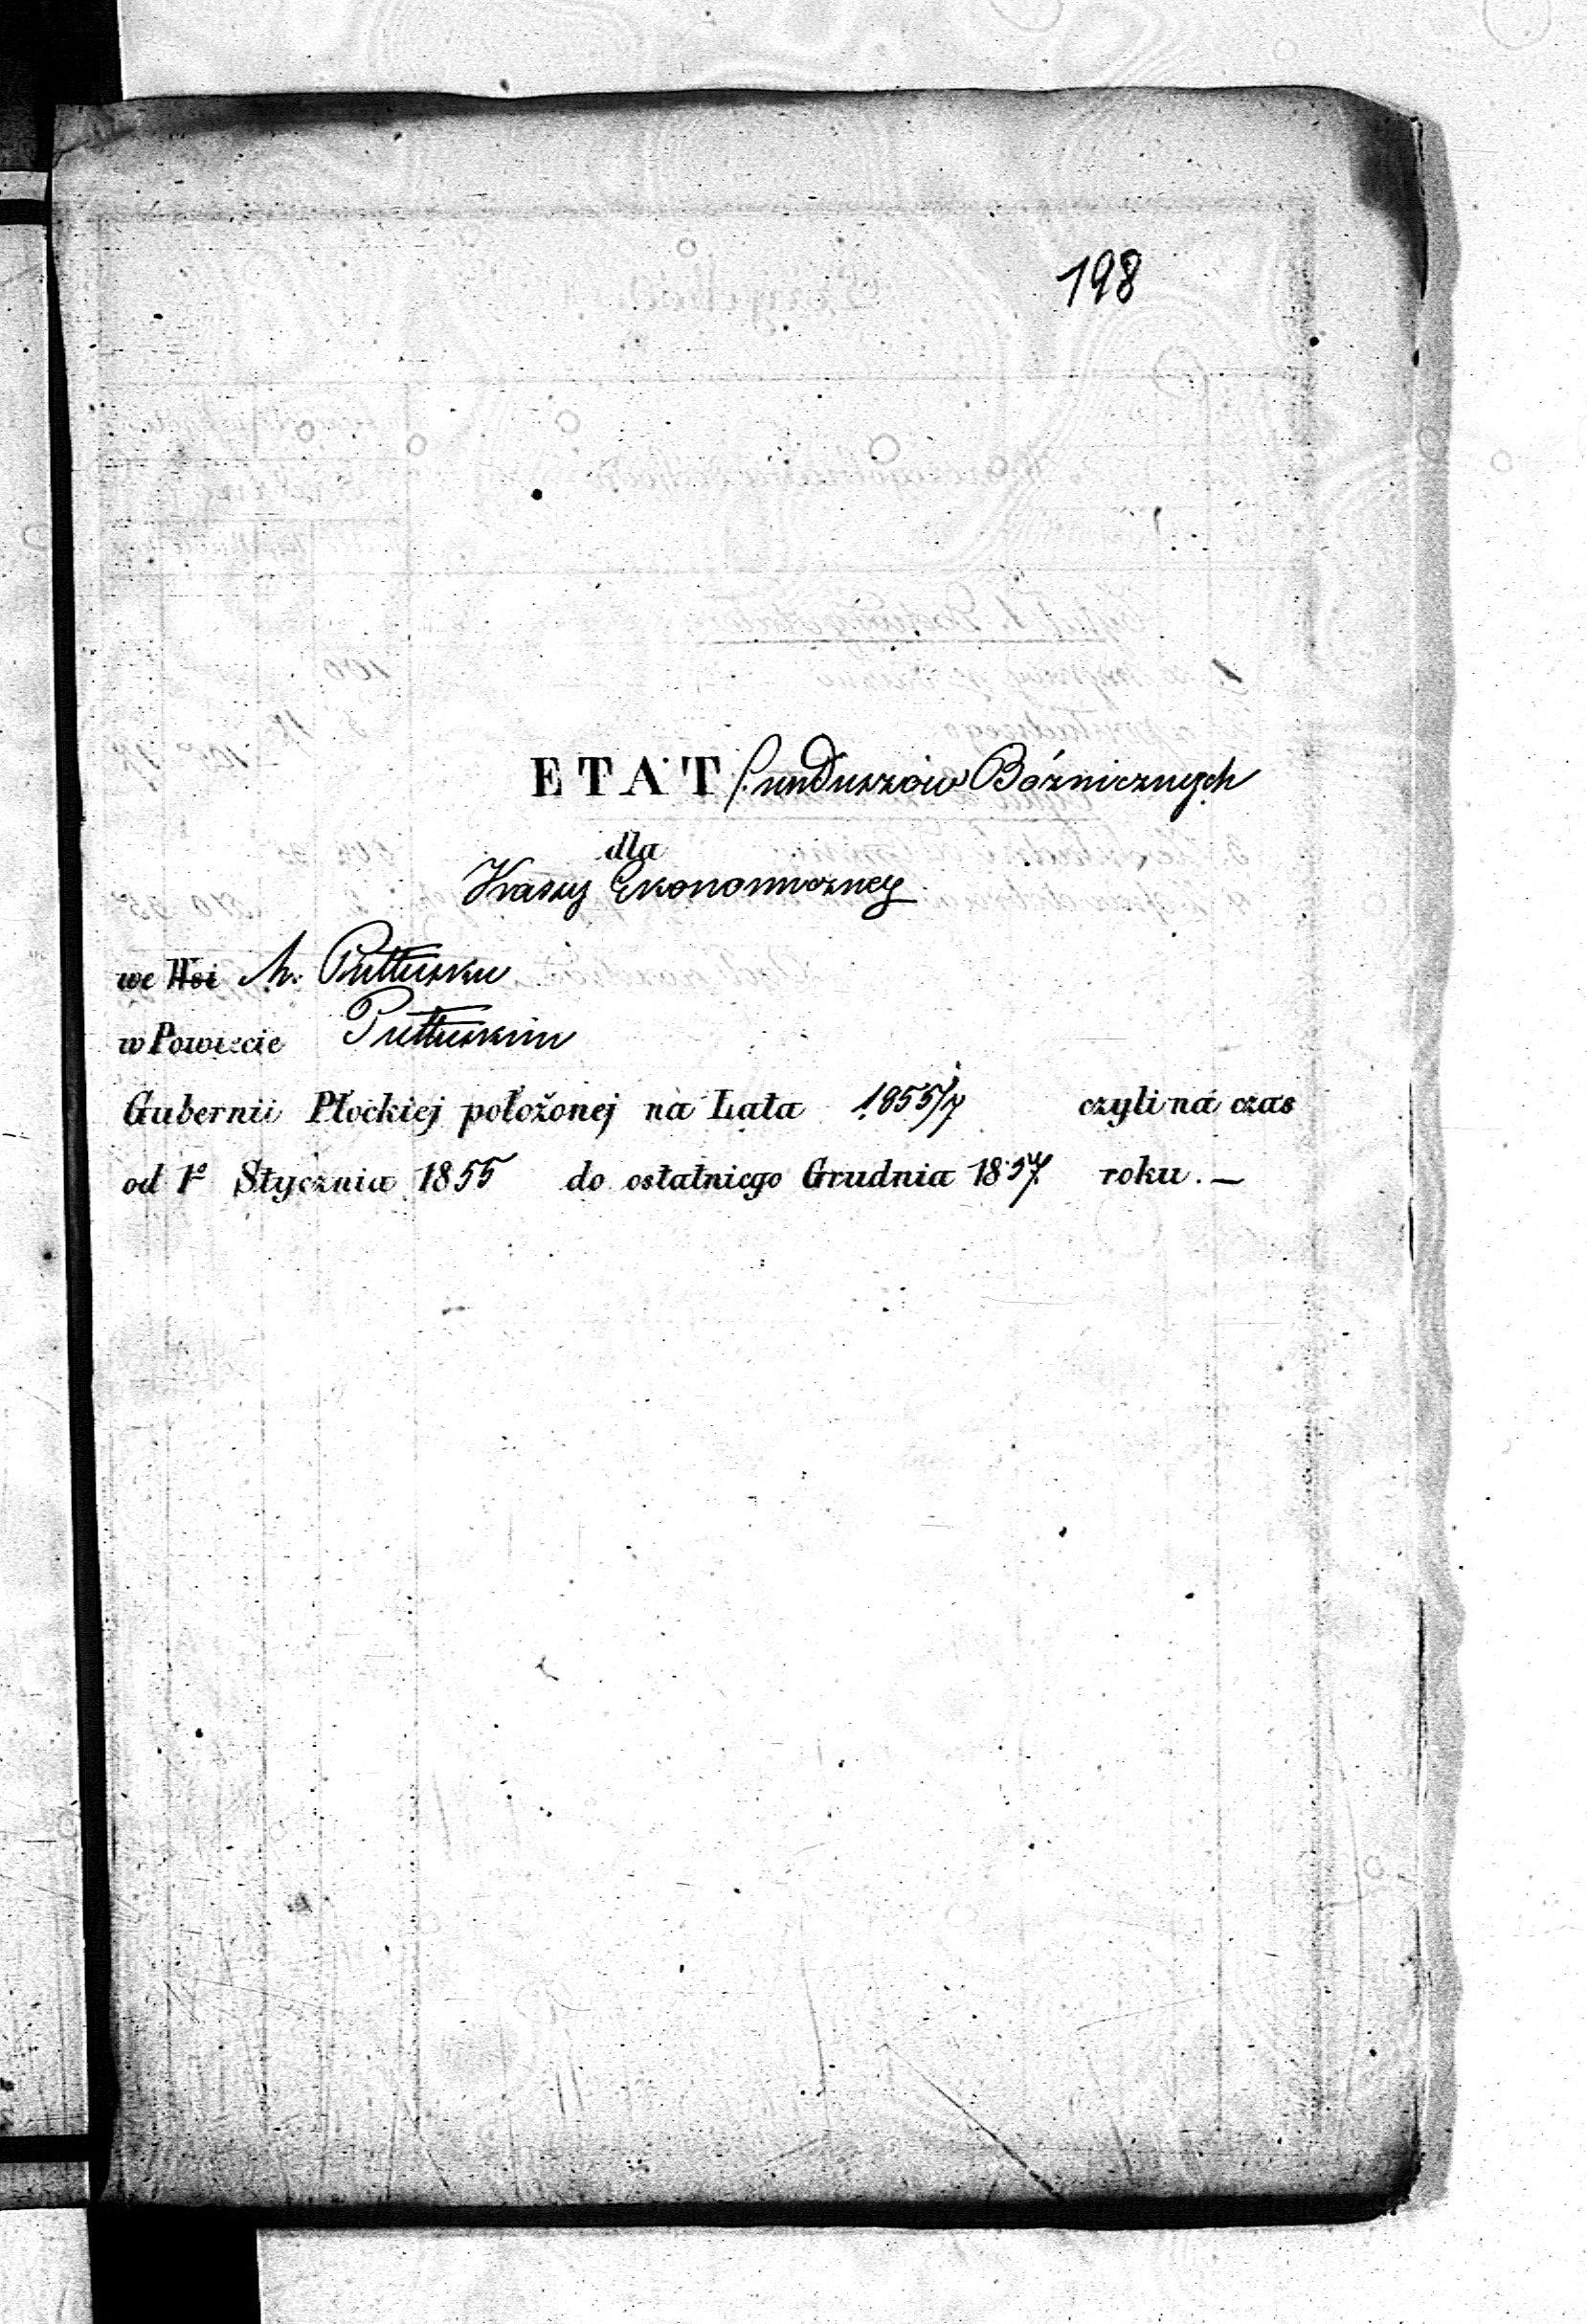 198
ETAT funduszów Bóźnicznych
dla
Kassy Ekonomiczney
we Wsi M. Pułtusku
w Powiecie Pułtuskim
Gubernii Płockiej położonej na Lata 1855/7 czyli na czas
od 1º Stycznia 1855 do ostatniego Grudnia 1857 roku. —